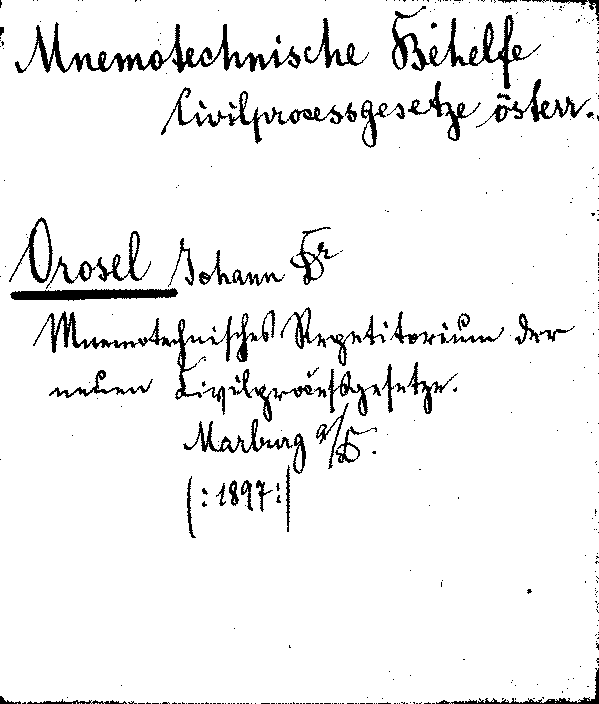 Mnemotechnische Behelfe
Civilprocessgesetze österr.
Orosel Johann Dr
Mnemotechnisches Repetitorium der
neuen Civilproceßgesetze.
Marburg a/D.
(:1897:)